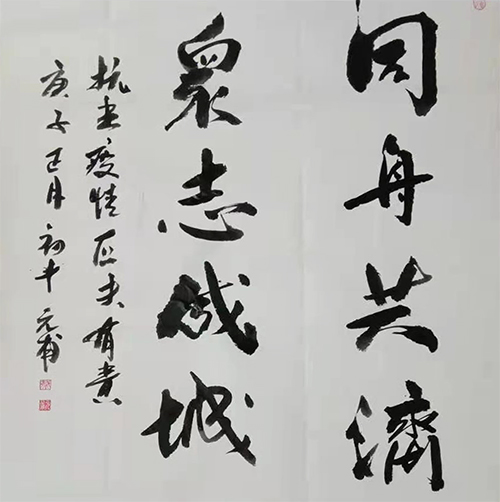 同舟共濟
衆志成城
抗击疫情匹夫有责
庚子正月初十元甫